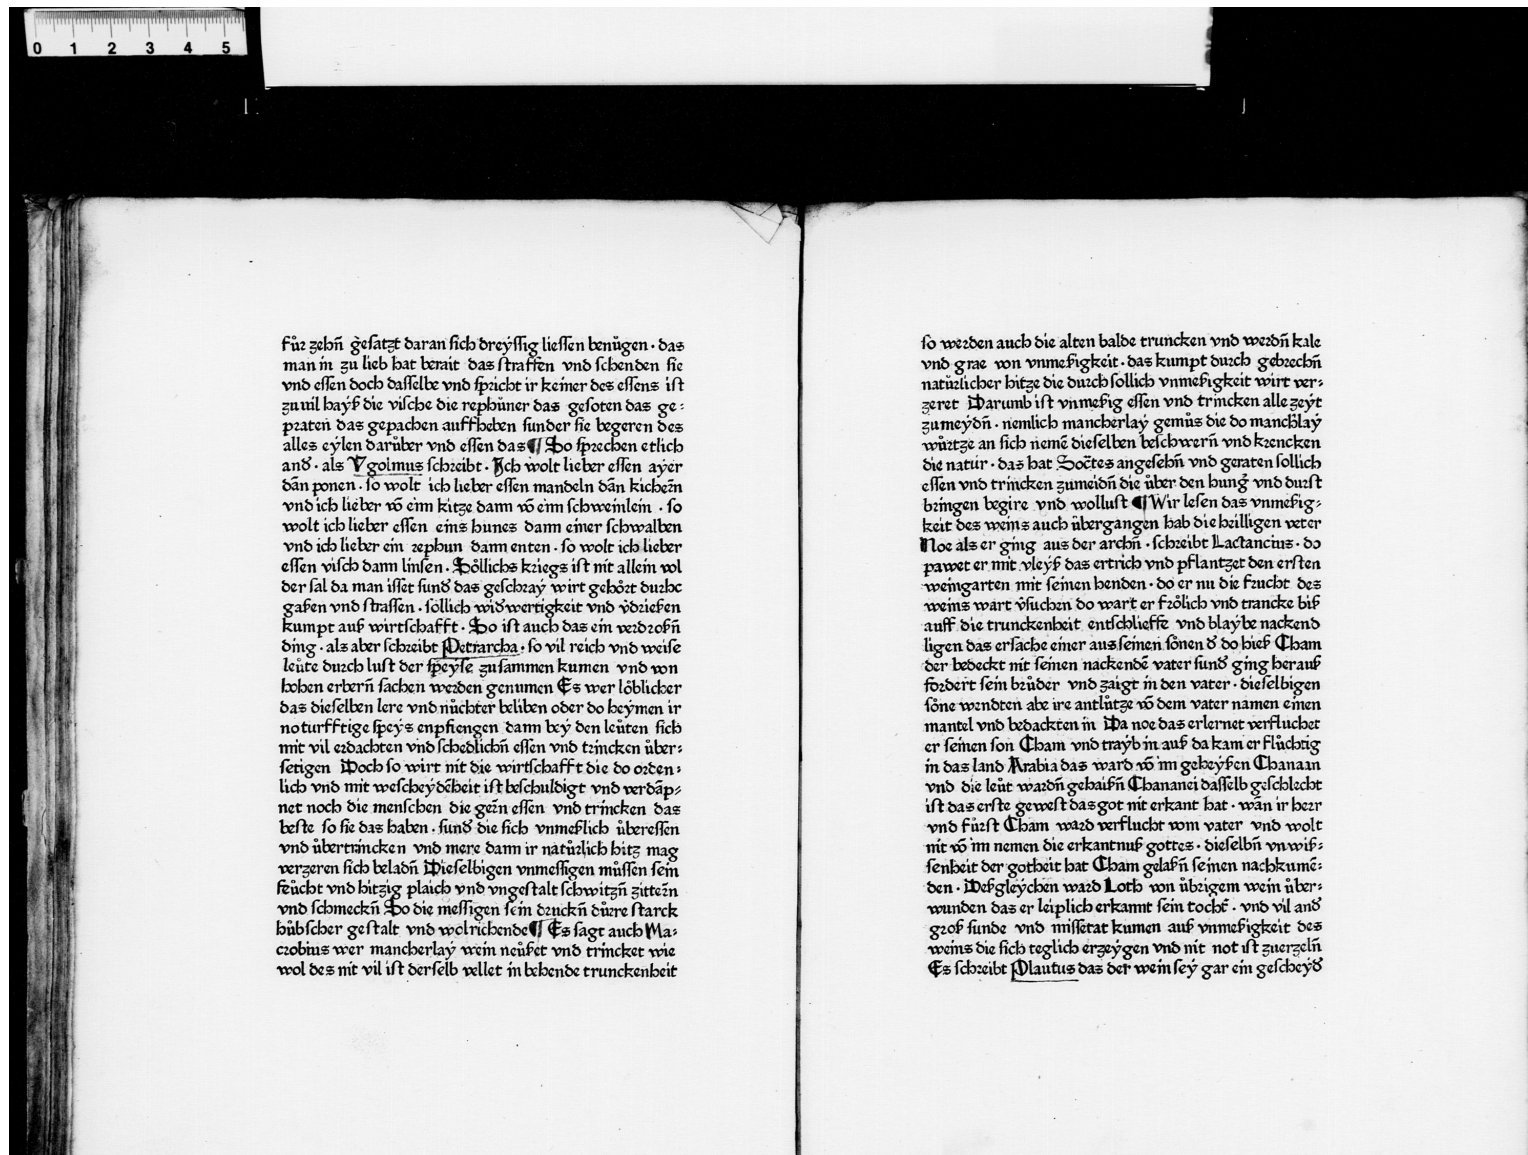 0 1 2 3 4 5
fůr zehñ gesatzt daran sich dreyssig liessen benůgen · das
man in zu lieb hat berait das straffen vnd schenden sie
vnd essen doch dasselbe vnd spricht ir keiner des essens ist
zuuil hayß die vische die rephůner das gesoten das ge⸗
praten das gepachen auffheben sunder sie begeren des
alles eylen darůber vnd essen das ¶ So sprechen etlich
and᷒ · als Vgolinus schreibt · Ich wolt lieber essen ayer
dān ponen · so wolt ich lieber essen mandeln dān kichern
vnd ich lieber vō einn kitze dann vō einn schweinlein · so
wolt ich lieber essen eins hunes dann einer schwalben
vnd ich lieber ein rephun dann enten · so wolt ich lieber
essen visch dann linsen · Sőllichs kriegs ist nit allein vol
der sal da man isset sund᷒ das geschray wirt gehőrt durhc
gaßen vnd strassen · sőllich wid᷒wertigkeit vnd v̄drießen
kumpt auß wirtschafft · So ist auch das ein verdroßñ
ding · als aber schreibt Petrarcha · so vil reich vnd weise
leůte durch lust der speyse zusammen kumen vnd von
hohen erberñ sachen werden genumen Es wer lőblicher
das dieselben lere vnd nůchter beliben oder do heymen ir
noturfftige speys enpfiengen dann bey den leůten sich
mit vil erdachten vnd schedlichñ essen vnd trincken ůber⸗
setigen Doch so wirt nit die wirtschafft die do orden⸗
lich vnd mit wescheydēheit ist beschuldigt vnd verdāp⸗
net noch die menschen die gern essen vnd trincken das
beste so sie das haben · sund᷒ die sich vnmeßlich ůberessen
vnd ůbertrincken vnd mere dann ir natůrlich hitz mag
verzeren sich beladñ Dieselbigen vnmessigen můssen sein
feůcht vnd hitzig plaich vnd vngestalt schwitzñ zittern
vnd schmeckñ So die messigen sein druckñ důrre starck
hůbscher gestalt vnd wolrichende ¶ Es sagt auch Ma⸗
crobius wer mancherlay wein neůßet vnd trincket wie
wol des nit vil ist derselb vellet in behende trunckenheit
so werden auch die alten balde truncken vnd werdñ kale
vnd grae von vnmeßigkeit · das kumpt durch gebrechñ
natůrlicher hitze die durch sollich vnmeßigkeit wirt ver⸗
zeret Darumb ist vnmeßig essen vnd trincken alle zeyt
zumeydñ · nemlich mancherlay gemůs die do manch᷒lay
wůrtze an sich nemē dieselben beschwerñ vnd krencken
die natur · das hat Soctes angesehñ vnd geraten sollich
essen vnd trincken zumeidñ die ůber den hung᷒ vnd durst
bringen begire vnd wollust ¶ Wir lesen das vnmeßig⸗
keit des weins auch ůbergangen hab die heilligen veter
Noe als er ging aus der archñ · schreibt Lactancius · do
pawet er mit vleyß das ertrich vnd pflantzet den ersten
weingarten mit seinen henden · do er nu die frucht des
weins wart v̄suchen do wart er frőlich vnd trancke biß
auff die trunckenheit entschlieffe vnd blaybe nackend
ligen das ersache einer aus seinen sőnen d᷒ do hieß Cham
der bedeckt nit seinen nackendē vater sund᷒ ging herauß
fordert sein brůder vnd zaigt in den vater · dieselbigen
sőne wendten abe ire antlůtze vō dem vater namen einen
mantel vnd bedackten in Da noe das erlernet verfluchet
er seinen son Cham vnd trayb in auß da kam er flůchtig
in das land Arabia das ward vō im geheyßen Chanaan
vnd die leůt wardñ gehaißñ Chananei dasselb geschlecht
ist das erste gewest das got nit erkant hat · wān ir herr
vnd fůrst Cham ward verflucht vom vater vnd wolt
nit vō im nemen die erkantnuß gottes · dieselbñ vnwiß⸗
senheit der gotheit hat Cham gelaßñ seinen nachkumē⸗
den · Deßgleychen ward Loth von ůbrigem wein ůber⸗
wunden das er leiplich erkannt sein tocht᷒ · vnd vil and᷒
groß sunde vnd missetat kumen auß vnmeßigkeit des
weins die sich teglich erzeygen vnd nit not ist zuerzelñ
Es schreibt Plautus das der wein sey gar ein gescheyd᷒